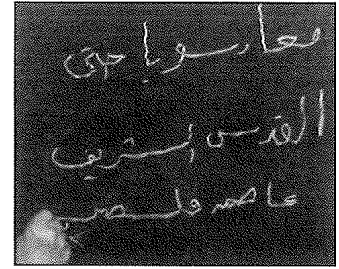 معا سويا حتى
القدس الشريف
عاصمه فلسطين